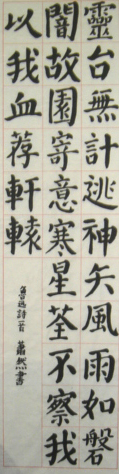 靈台無計逃神矢風雨如磐
闇故園寄意寒星荃不察我
以我血荐軒轅
魯迅詩一首 蕭然書